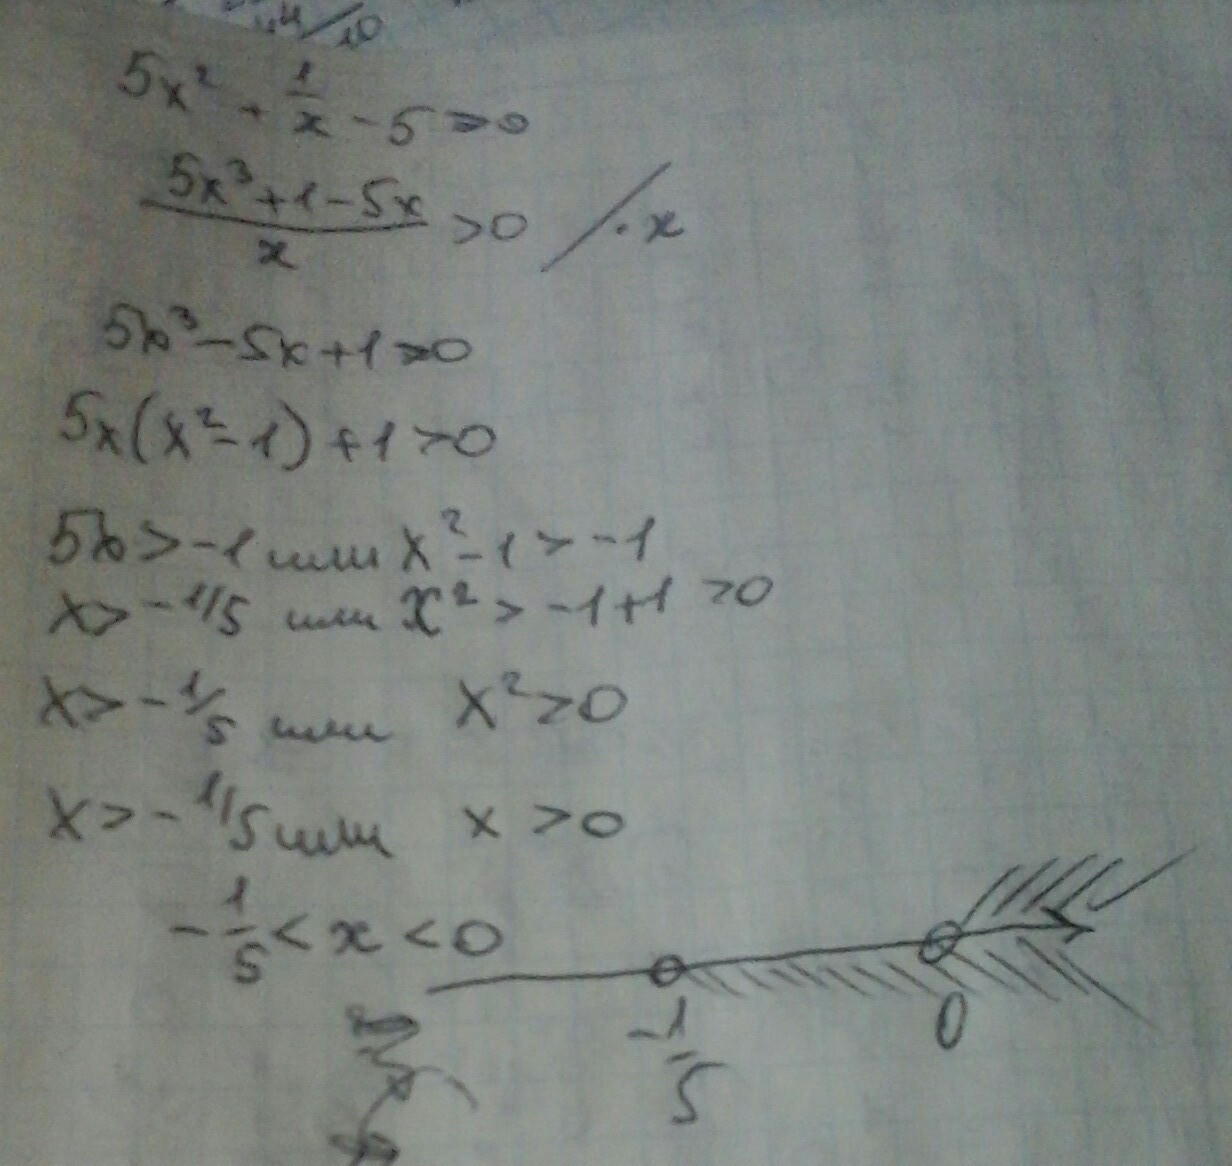 5x² + 1/x - 5 > 0
(5x³+1-5x)/x > 0 / · x
5x³-5x+1>0
5x(x²-1)+1>0
5x>-1 или x²-1>-1
x>-1/5 или x²>-1+1 >0
x>-1/5 или x²>0
x>-1/5 или x>0
-1/5 < x < 0
-1/5 0